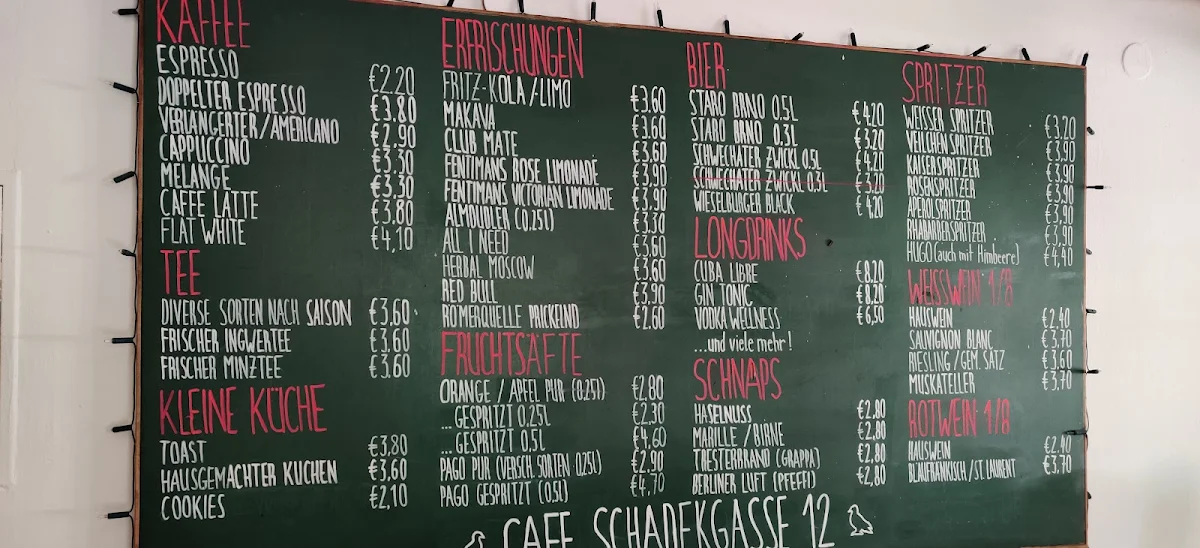 KAFFEE
ESPRESSO €2.20
DOPPELTER ESPRESSO €3.80
VERLÄNGERTER/AMERICANO €2,90
CAPPUCCINO €3.30
MELANGE €3,30
CAFFE LATTE €3.80
FLAT WHITE €4,10
TEE
DIVERSE SORTEN NACH SAISON €3,60
FRISCHER INGWERTEE €3.60
FRISCHER MINZTEE €3.60
KLEINE KÜCHE
TOAST €3,80
HAUSGEMACHTER KUCHEN €3,60
COOKIES €2,10
ERFRISCHUNGEN
FRITZ-KOLA/-LIMO €3.60
MAKAVA €3.60
CLUB MATE €3.60
FENTIMANS ROSE LIMONADE €3.90
FENTIMANS VICTORIAN LIMONADE €3.90
ALMDUDLER (0,25l) €3.30
ALL I NEED €3.60
HERBAL MOSCOW €3.60
RED BULL €3.90
RÖMERQUELLE PRICKELND €2.60
FRUCHTSÄFTE
ORANGE / APFEL PUR (0.25l) €2.80
...GESPRITZT 0,25L €2.30
...GESPRITZT 0,5L €4,60
PAGO PUR (VERSCH. SORTEN 0,25l) €2,90
PAGO GESPRITZT (0.5l) €4,70
BIER
STARO BRNO 0.5L €4.20
STARO BRNO 0.3L €3.20
SCHWECHATER ZWICKL 0.5L €4.20
SCHWECHATER ZWICKL 0.3L €3.20
WIESELBURGER BLACK €4,20
LONGDRINKS
CUBA LIBRE €8,20
GIN TONIC €8,20
VODKA WELLNESS €6,50
...und viele mehr!
SCHNAPS
HASELNUSS €2.80
MARILLE / BIRNE €2.80
TRESTERBRAND (GRAPPA) €2,80
BERLINER LUFT (PFEFFI) €2,80
SPRITZER
WEISSER SPRITZER €3.20
VEILCHEN SPRITZER €3,90
KAISERSPRITZER €3.90
ROSENSPRITZER €3,90
APEROLSPRITZER €3.90
RHABARBERSPRITZER €3,90
HUGO (auch mit Himbeere) €4,40
WEISSWEIN 1/8
HAUSWEIN €2.40
SAUVIGNON BLANC €3,70
RIESLING / GEM. SATZ €3.60
MUSKATELLER €3,70
ROTWEIN 1/8
HAUSWEIN €2.40
BLAUFRÄNKISCH / ST. LAURENT €3.70
CAFE SCHADEKGASSE 12